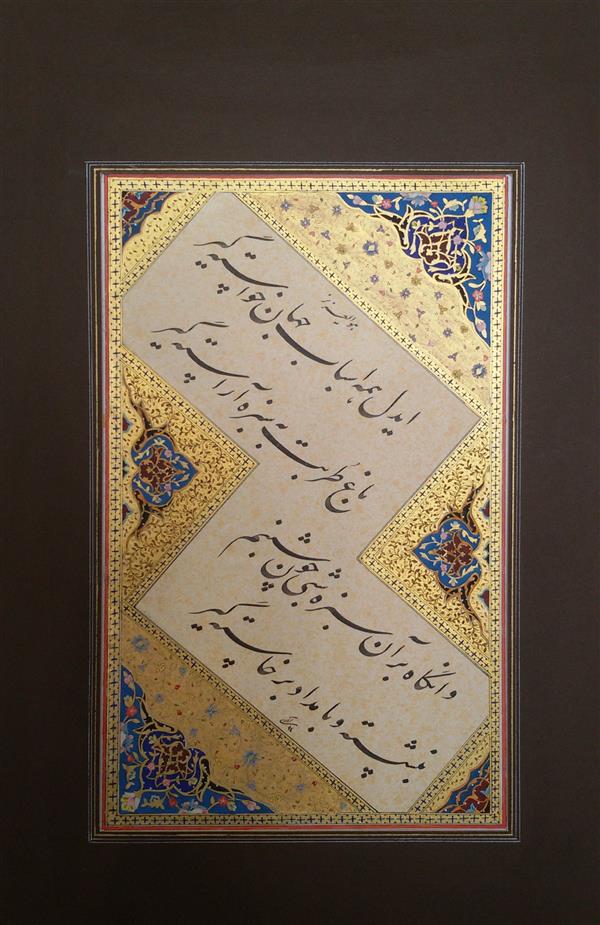 هوالعزیز
ایدل همه اسباب جهان خواسته گیر
باغ طربت به سبزه آراسته گیر
وانگاه بر آن سبزه شبی چون شبنم
بنشسته و بامداد برخاسته گیر